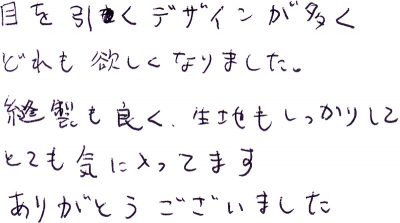 目を引くデザインが多く
どれも欲しくなりました。
縫製も良く、生地もしっかりして
とても気に入ってます
ありがとうございました